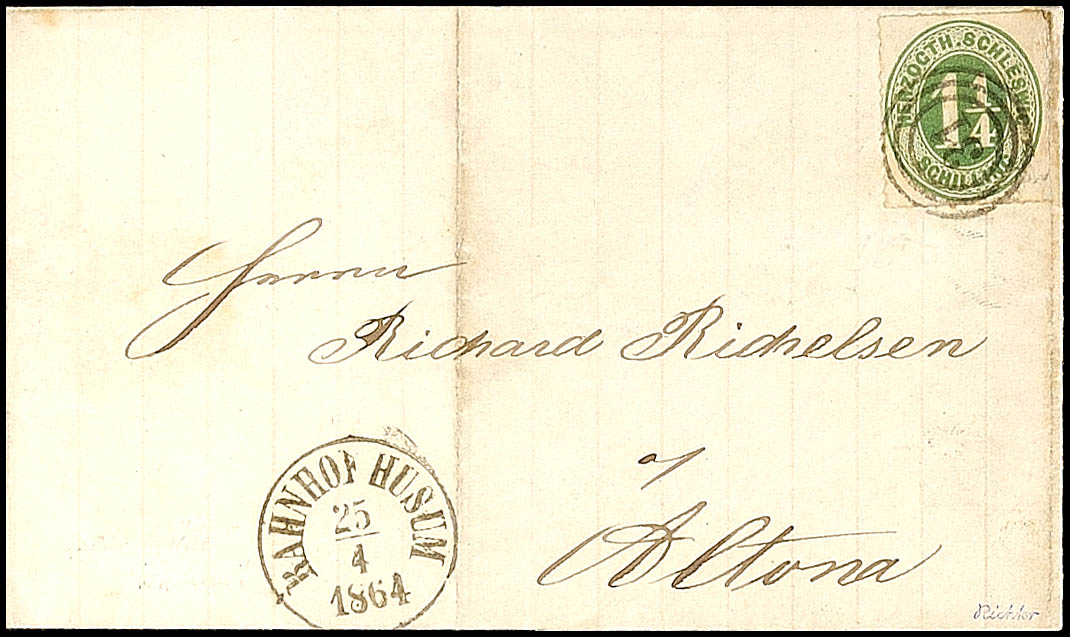 HERZOGTH. SCHLESWIG
1 1/4
SCHILLING
Herrn
Richard Richelsen
a/
Altona
BAHNHOF HUSUM
25
4
1864
Richter